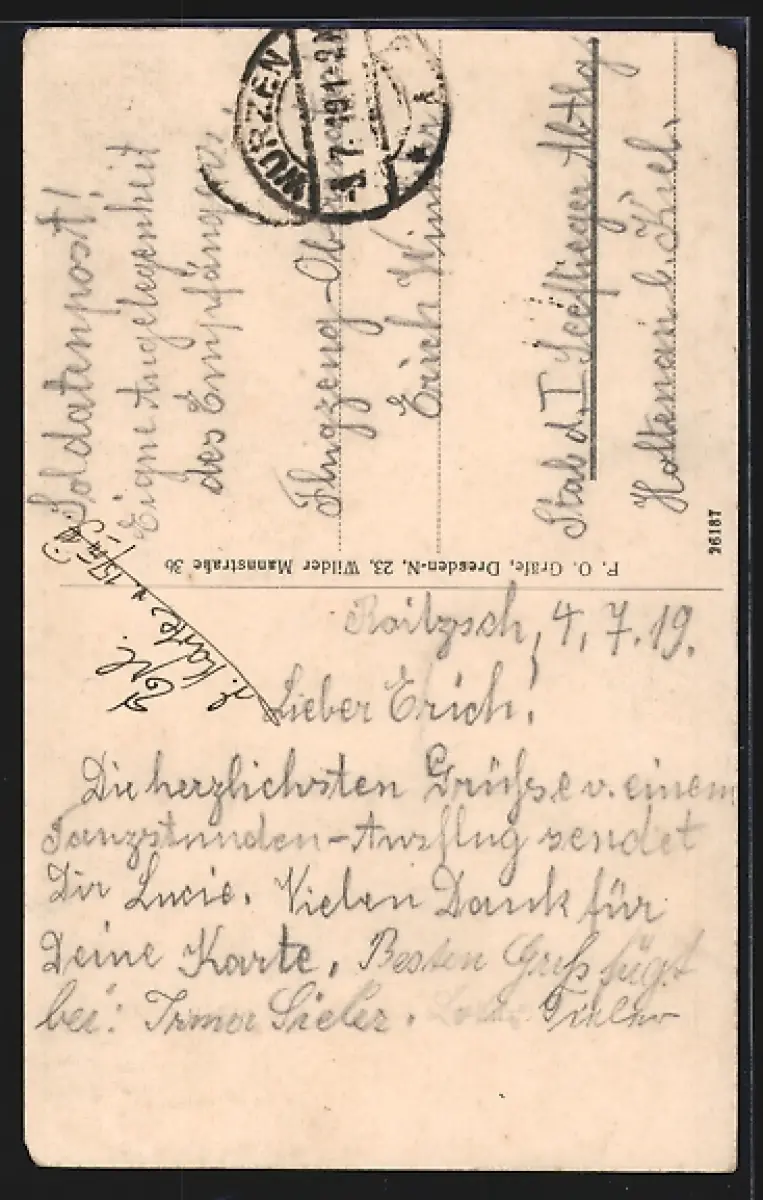 Soldatenpost!
Eigne Angelegenheit
des Empfängers!
WURZEN
7.19 1-2N
Flugzeug-Ob
Erich
Stab d. I Seeflieger Abtlg
Holtenau b. Kiel.
26187
P. O. Gräfe, Dresden-N, 23, Wilder Mannstraße 36
Roitzsch, 4. 7. 19.
Lieber Erich!
Die herzlichsten Grüsse v. einem
Tanzstunden-Ausflug sendet
Dir Lucie. Vielen Dank für
Deine Karte. Besten Gruß fügt
bei: Irma Sieler.